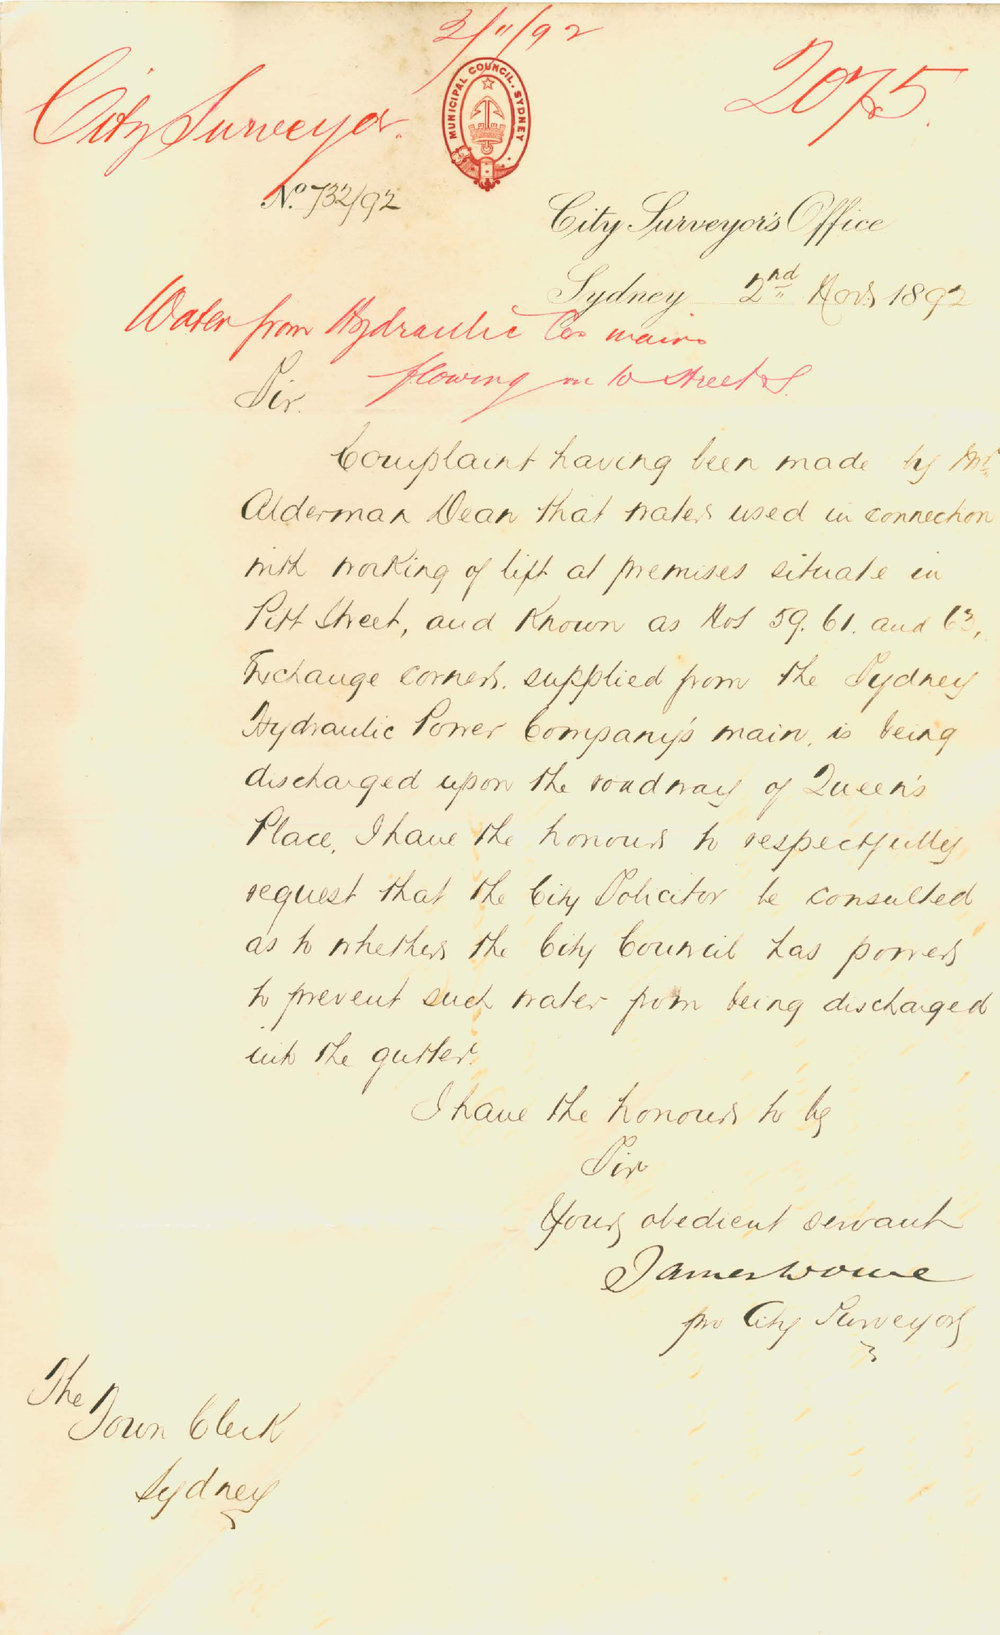 3/11/92
City Surveyor.
MUNICIPAL COUNCIL. SYDNEY.
2075.
No. 732/92
City Surveyor's Office
Sydney 2nd Novr 1892
Water from Hydraulic Cos mains
flowing on to streets.
Sir.
Complaint having been made by Mr.
Alderman Dean that water used in connection
with working of lift at premises situate in
Pitt Street, and known as Nos 59. 61. and 63,
Exchange corner. supplied from the Sydney
Hydraulic Power Company's main, is being
discharged upon the roadway of Queen's
Place, I have the honour to respectfully
request that the City Solicitor be consulted
as to whether the City Council has power
to prevent such water from being discharged
into the gutter.
I have the honour to be
Sir
Your obedient servant
James
pro City Surveyor
The
Town Clerk
Sydney